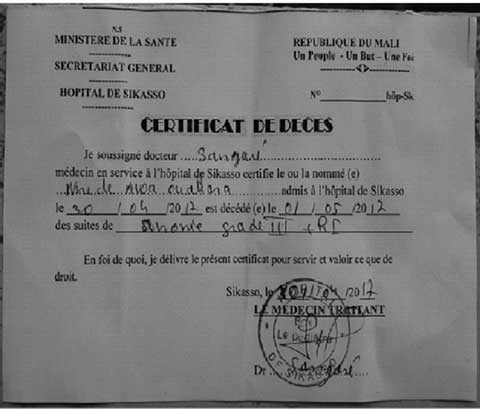 N.S
MINISTERE DE LA SANTE
SECRETARIAT GENERAL
HOPITAL DE SIKASSO
REPUBLIQUE DU MALI
Un Peuple - Un But – Une Foi
N° hôp-Sk
CERTIFICAT DE DECES
Je soussigné docteur Sangaré
médecin en service à l'hôpital de Sikasso certifie le ou la nommé (e)
admis à l'hôpital de Sikasso
le 30 / 04 /2017 est décédé (e) le 01 / 05 /2017
des suites de grade III
En foi de quoi, je délivre le présent certificat pour servir et valoir ce que de
droit.
Sikasso, le /2017
LE MEDECIN TRAITANT
DE SIKASSO
Dr Sangaré